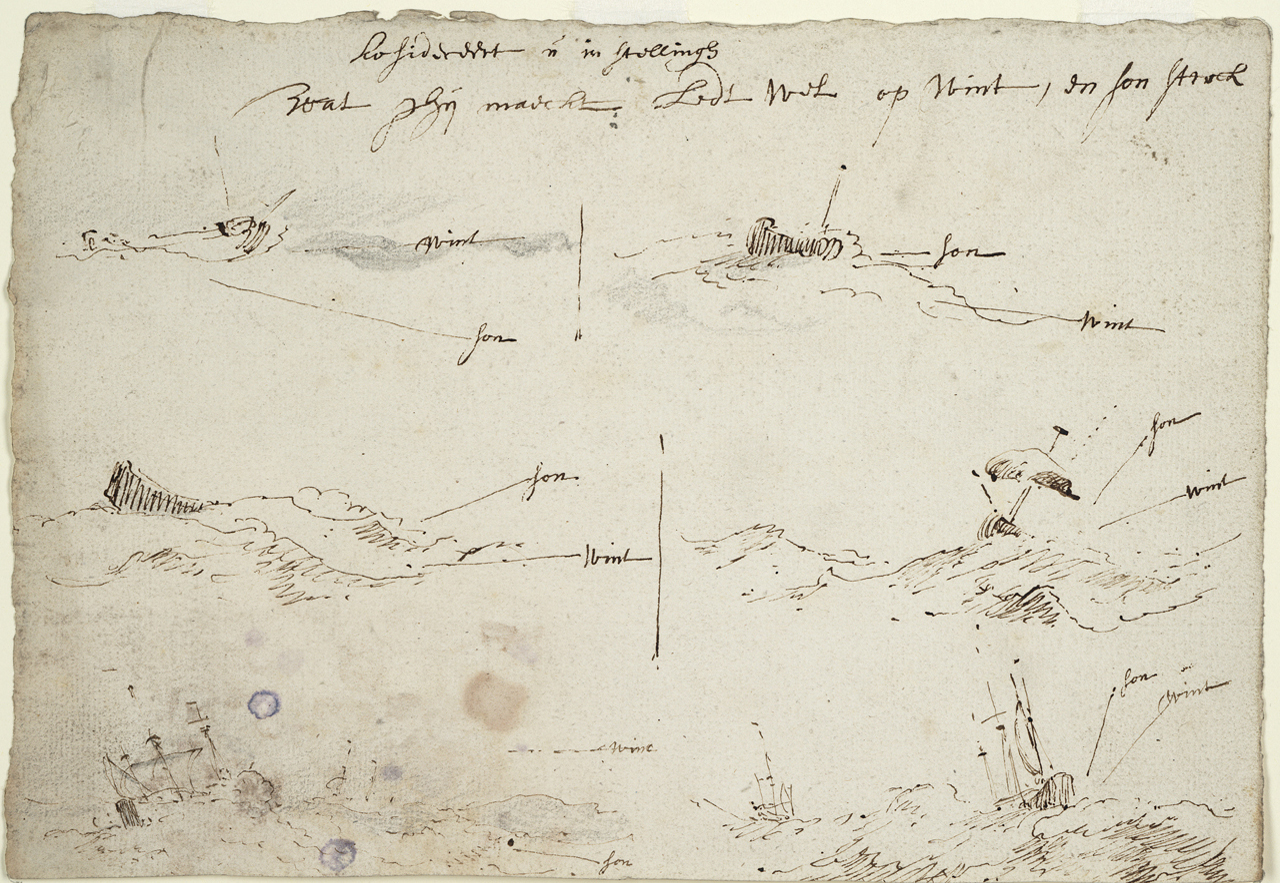 Considereert u in stellingh
Wat ghij maeckt Ledt Wel op Wint, en son streck
Wint
son
son
Wint
son
Wint
son
wint
son
wint
wint
son